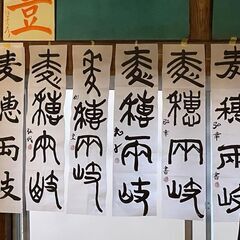 豊
麦穂両岐
麦穂両岐
麦穂両岐
麦穂両岐
麦穂両岐
麦穂両岐